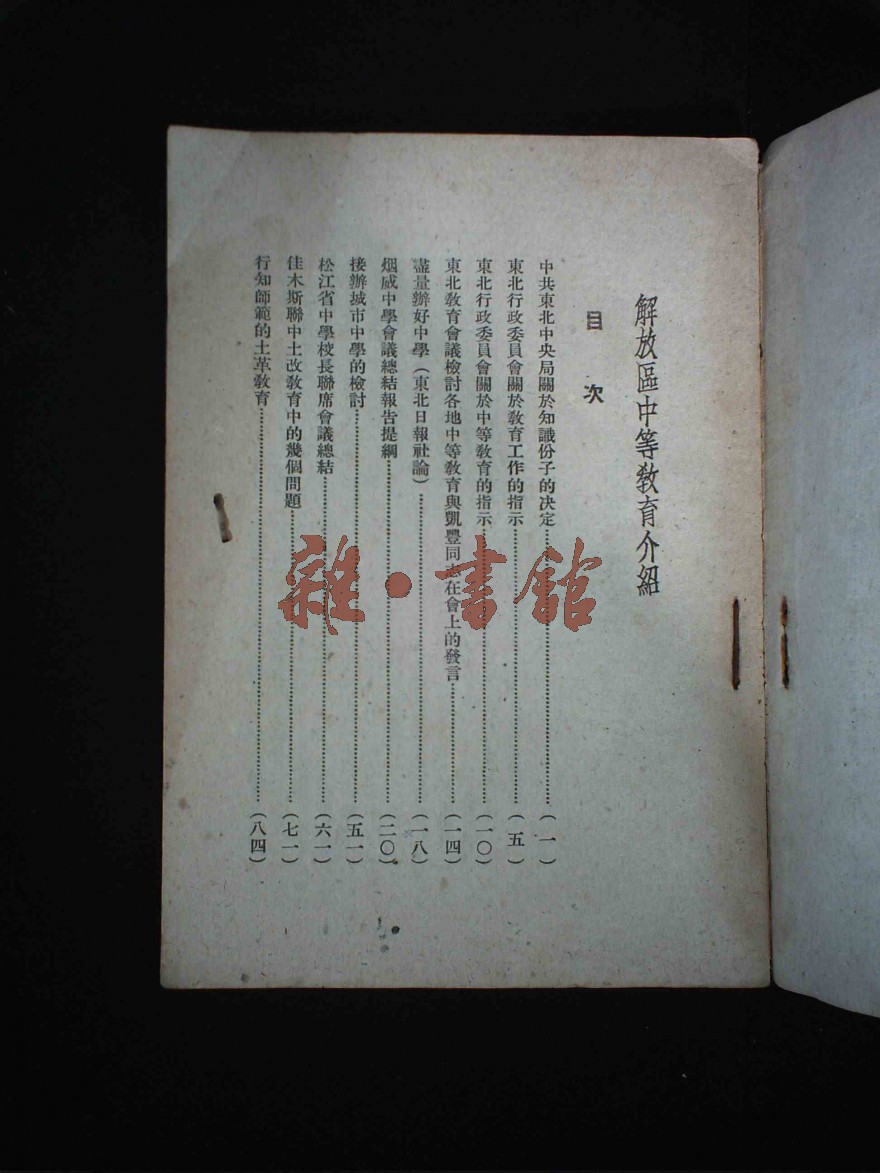 解放區中等教育介紹
目次
中共東北中央局關於知識份子的決定……(一)
東北行政委員會關於教育工作的指示……(五)
東北行政委員會關於中等教育的指示……(一〇)
東北教育會議檢討各地中等教育與凱豐同志在會上的發言……(一四)
盡量辦好中學(東北日報社論)……(一八)
烟威中學會議總結報告提綱……(二〇)
接辦城市中學的檢討……(五一)
松江省中學校長聯席會議總結……(六一)
佳木斯聯中土改教育中的幾個問題……(七一)
行知師範的土革教育……(八四)
雜·書館